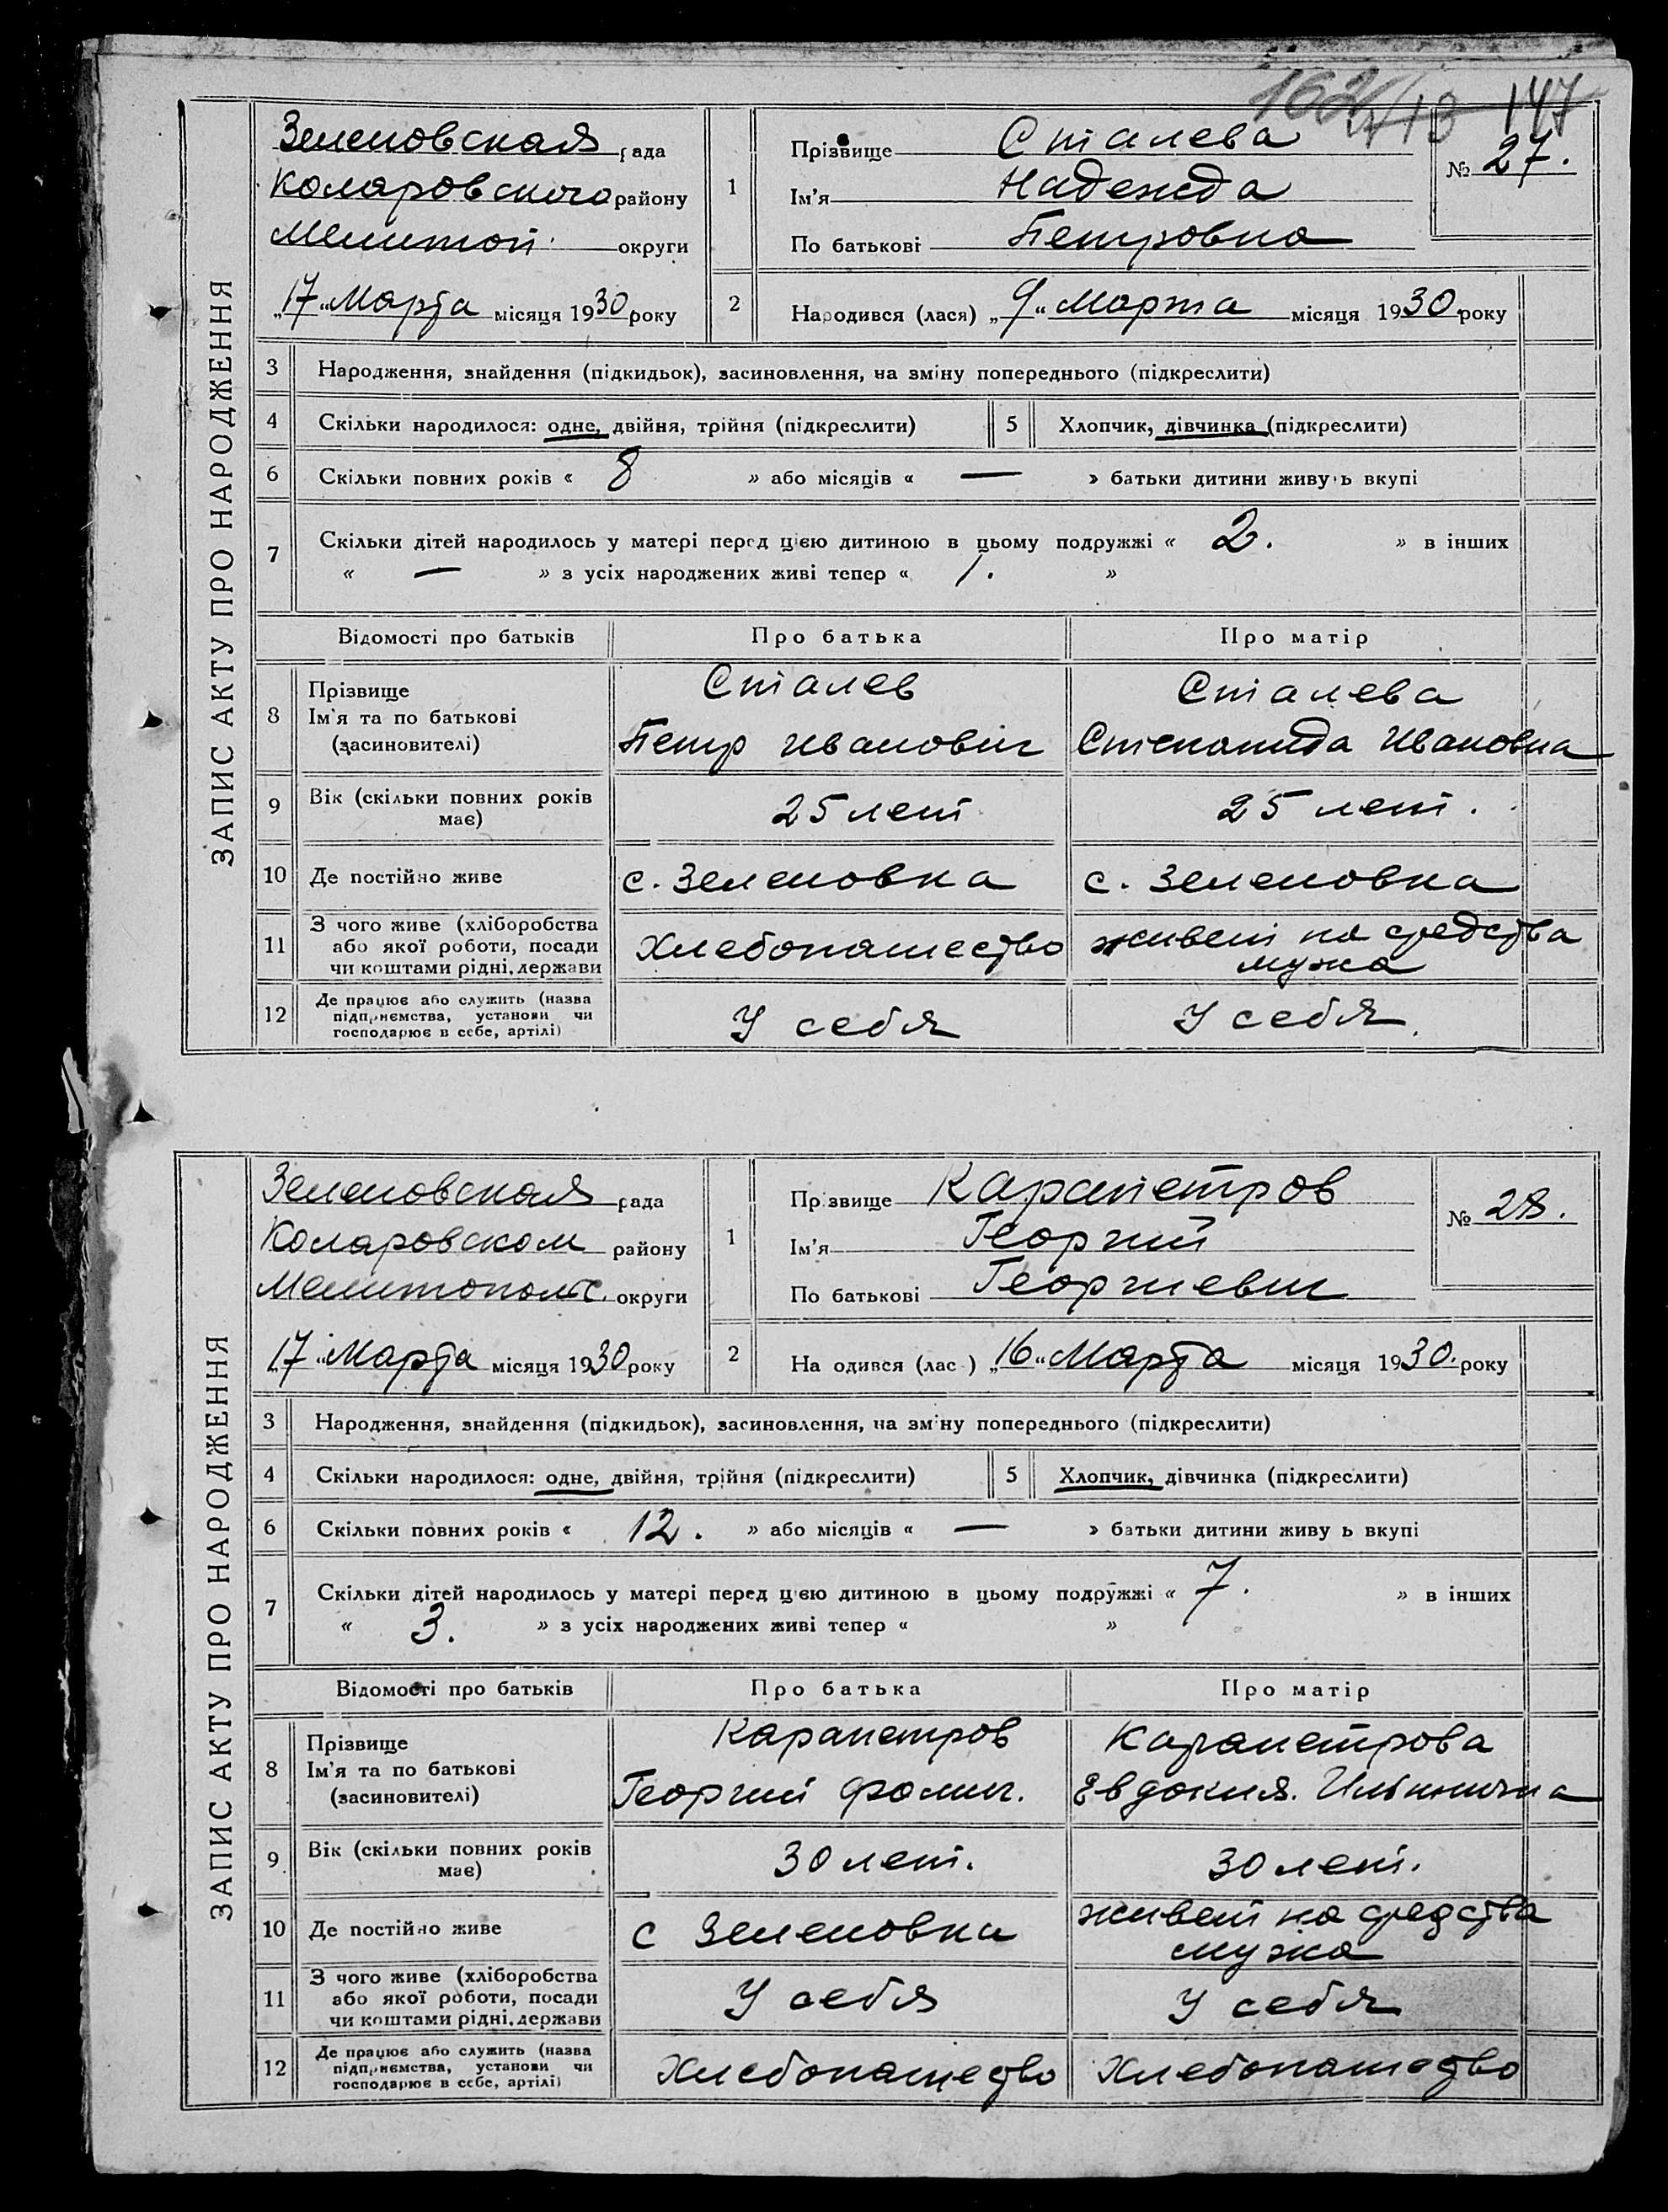 147
ЗАПИС АКТУ ПРО НАРОДЖЕННЯ
Зеленовская рада
Коларовского району
Мелитоп. округи
„17“ Марта місяця 1930 року
1
Прізвище Сталева
Ім'я Надежда
По батькові Петровна
№ 27.
2
Народився (лася) „9“ Марта місяця 1930 року
3 Народження, знайдення (підкидьок), засиновлення, на зміну попереднього (підкреслити)
4 Скільки народилося: одне, двійня, трійня (підкреслити) 5 Хлопчик, дівчинка (підкреслити)
6 Скільки повних років « 8 » або місяців « — » батьки дитини живуть вкупі
7 Скільки дітей народилось у матері перед цією дитиною в цьому подружжі « 2. » в інших
« — » з усіх народжених живі тепер « 1. »
Відомості про батьків Про батька Про матір
8 Прізвище Сталев Сталева
Ім'я та по батькові Петр Иванович Степанида Ивановна
(засиновителі)
9 Вік (скільки повних років має) 25 лет 25 лет.
10 Де постійно живе с. Зеленовка с. Зеленовка
11 З чого живе (хліборобства або якої роботи, посади чи коштами рідні, держави Хлебопашество живет на средства мужа
12 Де працює або служить (назва підприємства, установи чи господарює в себе, артілі) У себя У себя.
ЗАПИС АКТУ ПРО НАРОДЖЕННЯ
Зеленовская рада
Коларовском району
Мелитопольс. округи
„17“ Марта місяця 1930 року
1
Прізвище Карапетров
Ім'я Георгий
По батькові Георгиевич
№ 28.
2
Народився (лася) „16“ Марта місяця 1930. року
3 Народження, знайдення (підкидьок), засиновлення, на зміну попереднього (підкреслити)
4 Скільки народилося: одне, двійня, трійня (підкреслити) 5 Хлопчик, дівчинка (підкреслити)
6 Скільки повних років « 12. » або місяців « — » батьки дитини живуть вкупі
7 Скільки дітей народилось у матері перед цією дитиною в цьому подружжі « 7. » в інших
« 3. » з усіх народжених живі тепер « »
Відомості про батьків Про батька Про матір
8 Прізвище Карапетров Карапетрова
Ім'я та по батькові Георгий Фомич. Евдокия. Ильинична
(засиновителі)
9 Вік (скільки повних років має) 30 лет. 30 лет.
10 Де постійно живе с Зеленовка живет на средства мужа
11 З чого живе (хліборобства або якої роботи, посади чи коштами рідні, держави У себя У себя
12 Де працює або служить (назва підприємства, установи чи господарює в себе, артілі) Хлебопашество Хлебопашество